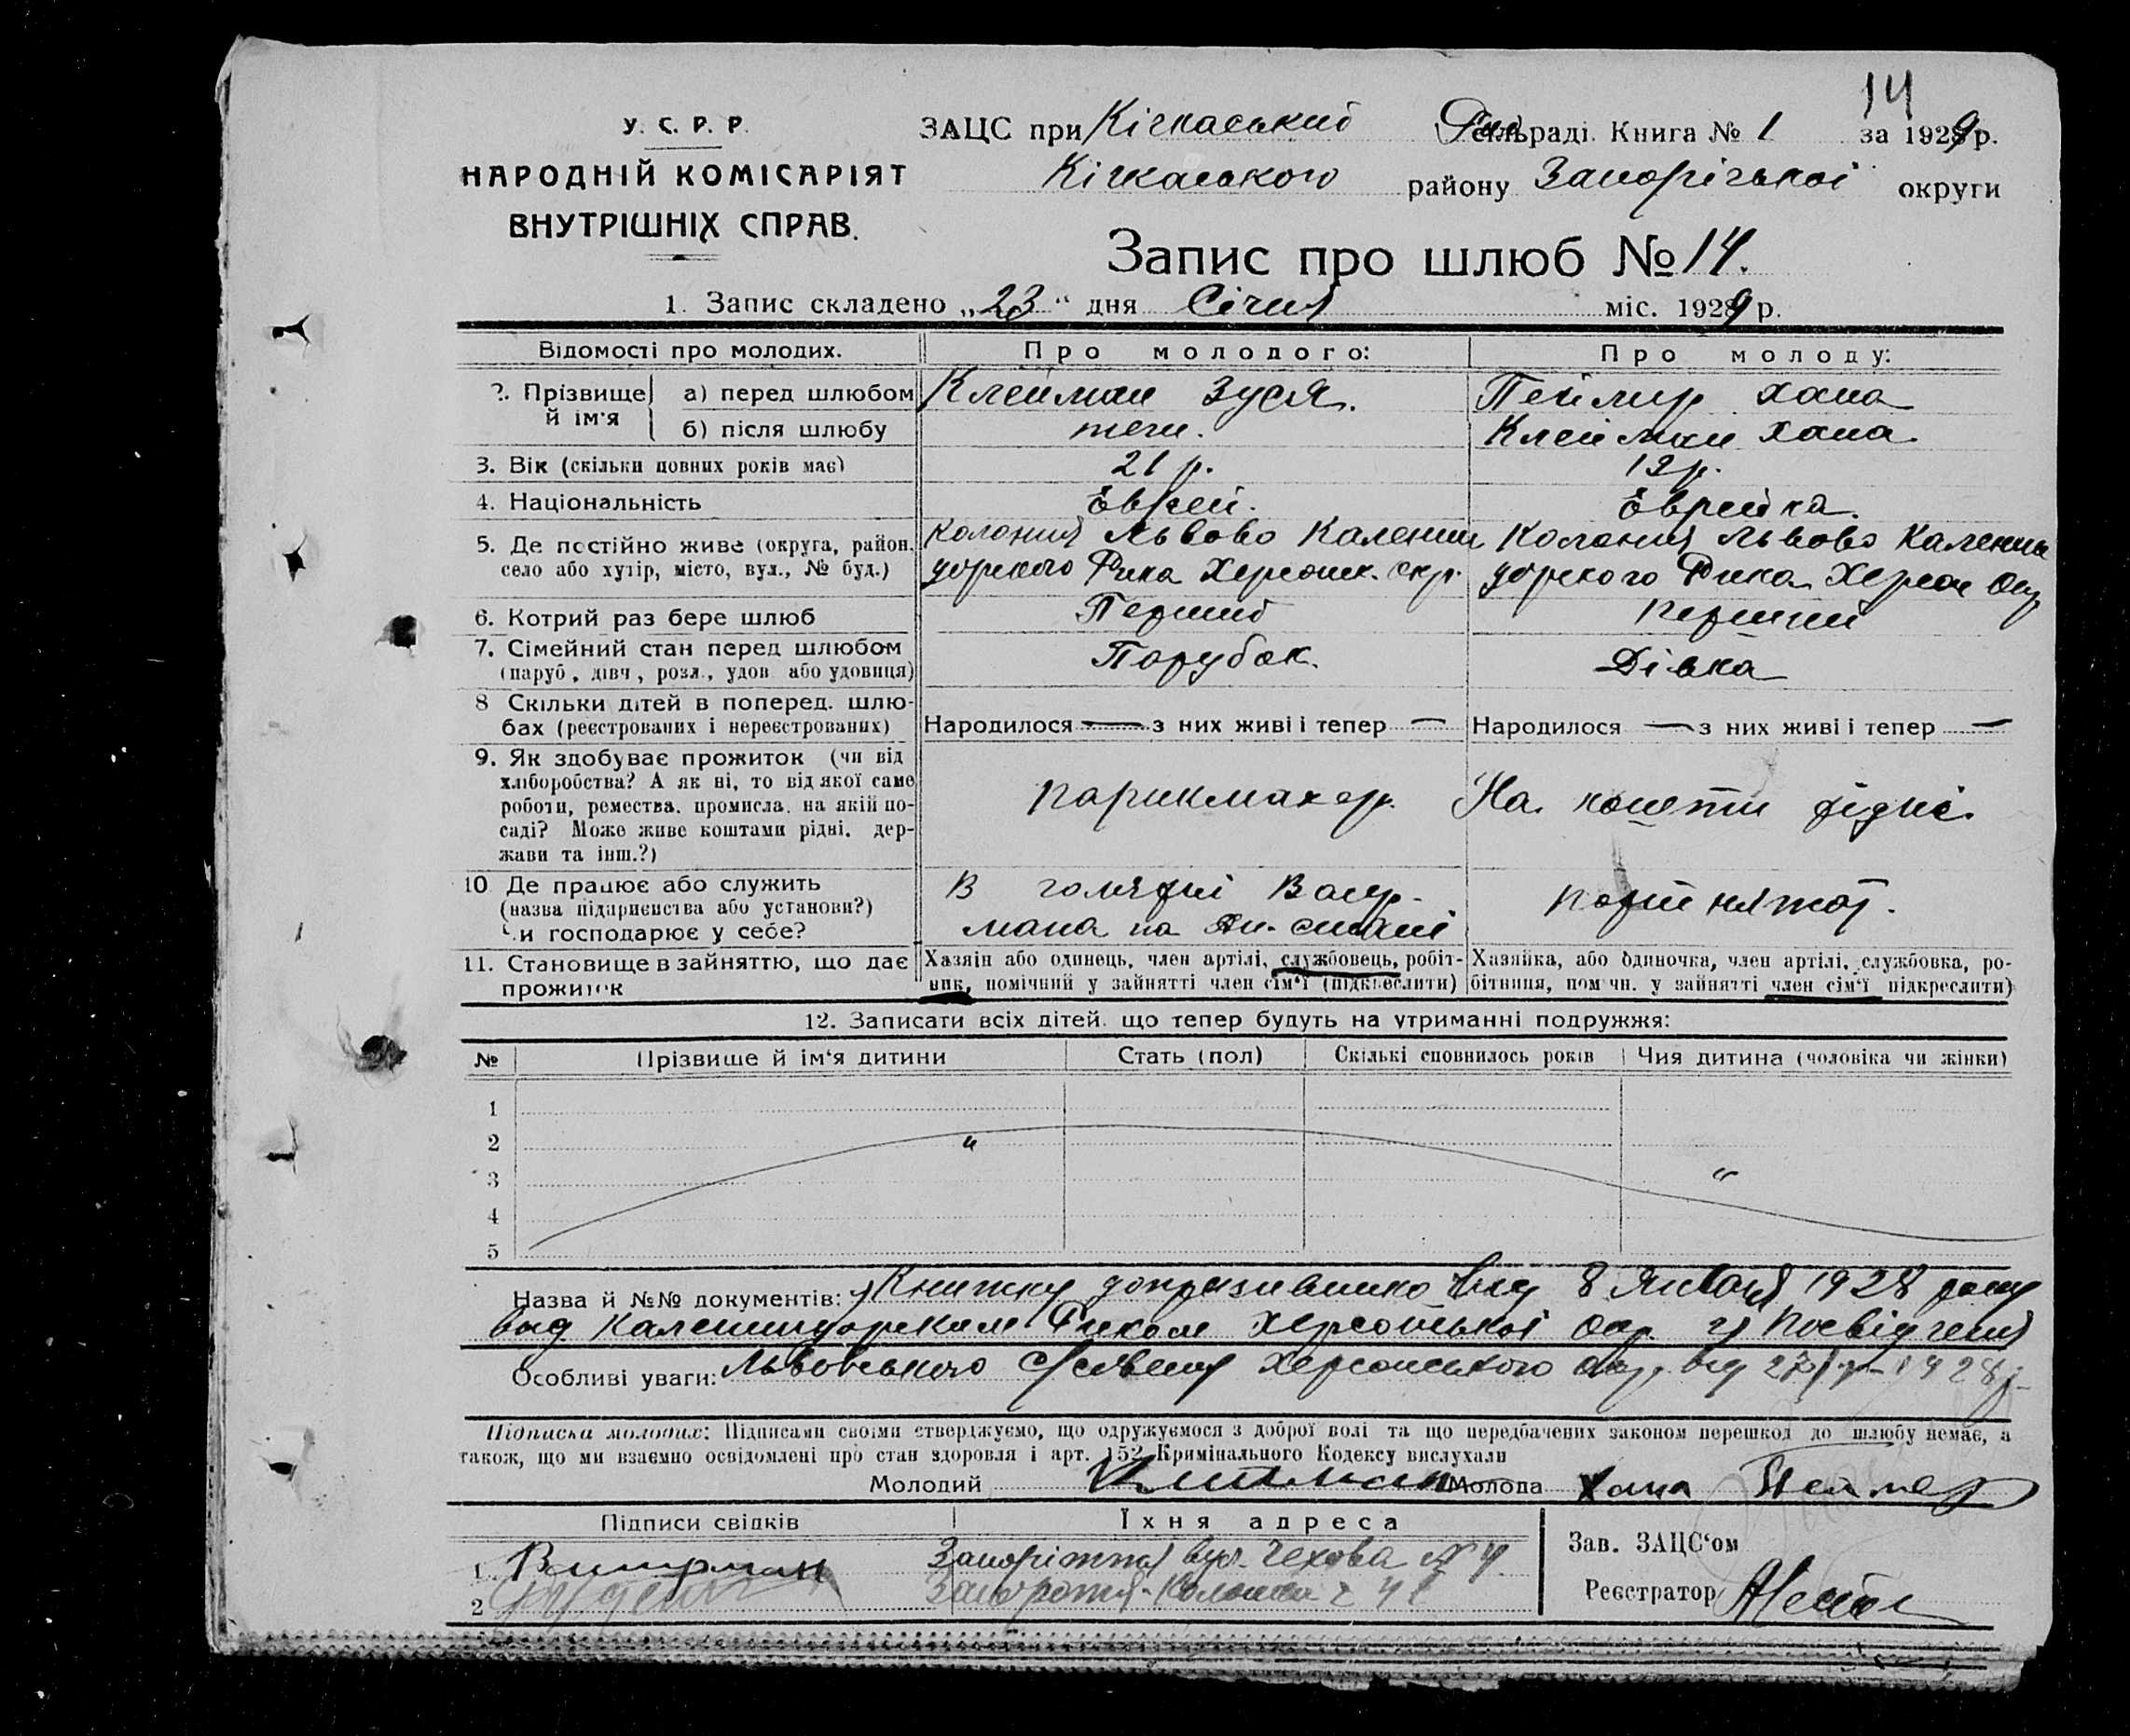 14
У. С. Р. Р.
НАРОДНІЙ КОМІСАРІЯТ
ВНУТРІШНІХ СПРАВ.
ЗАЦС при Кічкаський сельраді. Книга № 1 за 1929 р.
Кічкаського району Запорізької округи
Запис про шлюб № 14.
1. Запис складено „23“ дня Січня міс. 1929 р.
Відомості про молодих. Про молодого: Про молоду:
2. Прізвище й ім'я а) перед шлюбом Клейман Зуся. Пеймер Хана
б) після шлюбу теж. Клейман Хана.
3. Вік (скільки повних років має) 21 р. 19 р.
4. Національність Еврей. Еврейка.
5. Де постійно живе (округа, район, Колония Львово Каленин Колония Львово Каленин
село або хутір, місто, вул., № буд.) дорского Рика Херсонск. окр. дорского Рика Херсон Окр
6. Котрий раз бере шлюб Перший перший
7. Сімейний стан перед шлюбом Парубок. Дівка
(паруб., дівч., розл., удов. або удовиця)
8 Скільки дітей в поперед. шлю-
бах (реєстрованих і нереєстрованих) Народилося — з них живі і тепер — Народилося — з них живі і тепер —
9. Як здобуває прожиток (чи від
хліборобства? А як ні, то від якої саме
роботи, ремества, промисла, на якій по- парикмахер. На кошти рідні.
саді? Може живе коштами рідні, дер-
жави та інш.?)
10 Де працює або служить В голярні Вайр-
(назва підприємства або установи?) мана на
Чи господарює у себе?
11. Становище в зайняттю, що дає Хазяїн або одинець, член артілі, службовець, робіт- Хазяйка, або одиночка, член артілі, службовка, ро-
прожиток ник, помічний у зайнятті член сім'ї (підкреслити) бітниця, помічн. у зайнятті член сім'ї підкреслити)
12. Записати всіх дітей, що тепер будуть на утриманні подружжя:
№ Прізвище й ім'я дитини Стать (пол) Скількі сповнилось років Чия дитина (чоловіка чи жінки)
1
2 "
3 "
4
5
Назва й №№ документів: Книжку від 8 Января 1928 року
вид Калениндорским Риком Херсонської Окр. 2) Посвідчення
Особливі уваги: Львовського Херсонського окр. від 1928 р
Підписка молодих: Підписами своїми стверджуємо, що одружуємося з доброї волі та що передбачених законом перешкод до шлюбу немає, а
також, що ми взаємно освідомлені про стан здоровля і арт. 152 Кримінального Кодексу вислухали
Молодий Клейман Молода Хана Пеймер
Підписи свідків Їхня адреса
1. Запоріжжя вул. Чехова № 4
2
Зав. ЗАЦС'ом
Реєстратор